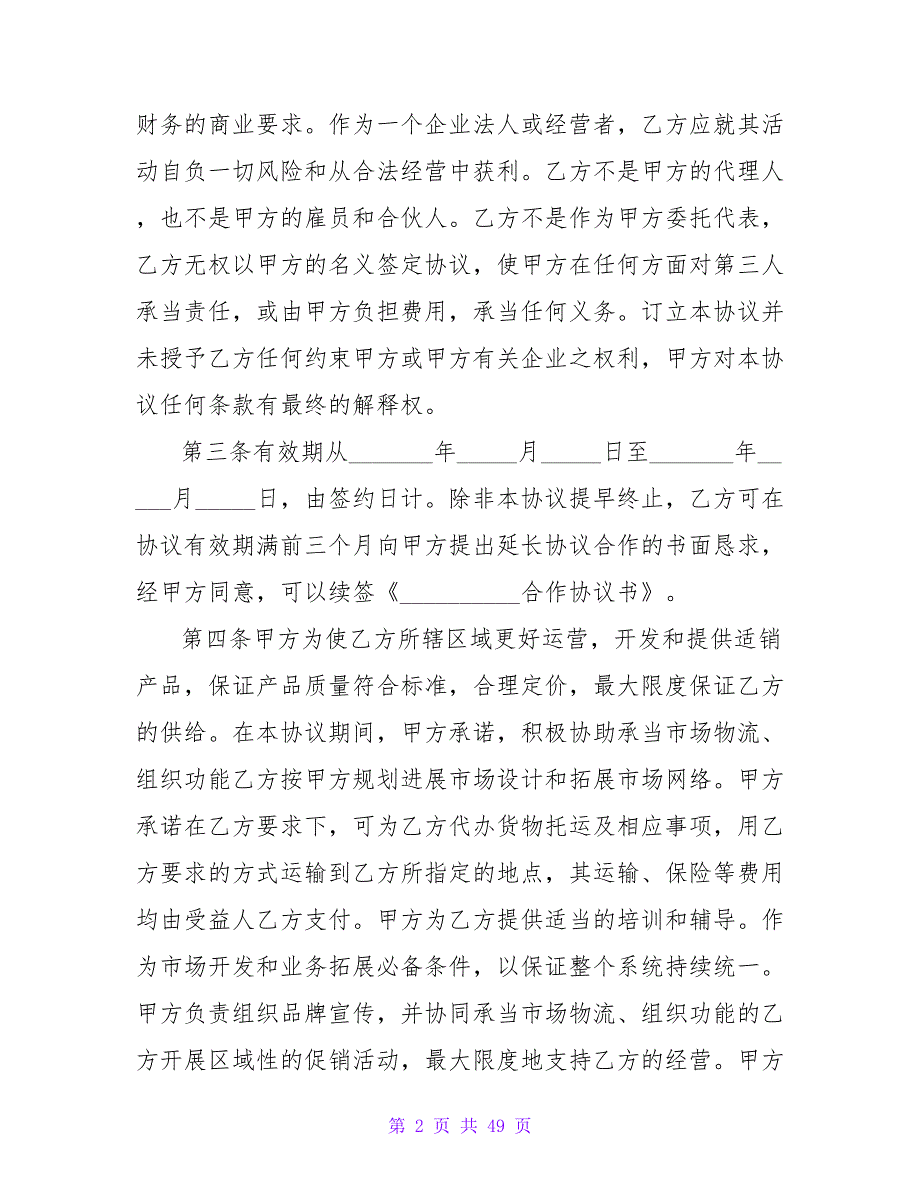 财务的商业要求。作为一个企业法人或经营者，乙方应就其活
动自负一切风险和从合法经营中获利。乙方不是甲方的代理人
，也不是甲方的雇员和合伙人。乙方不是作为甲方委托代表，
乙方无权以甲方的名义签定协议，使甲方在任何方面对第三人
承当责任，或由甲方负担费用，承当任何义务。订立本协议并
未授予乙方任何约束甲方或甲方有关企业之权利，甲方对本协
议任何条款有最终的解释权。
第三条有效期从_______年_____月_____日至_______年__
___月_____日，由签约日计。除非本协议提早终止，乙方可在
协议有效期满前三个月向甲方提出延长协议合作的书面恳求，
经甲方同意，可以续签《__________合作协议书》。
第四条甲方为使乙方所辖区域更好运营，开发和提供适销
产品，保证产品质量符合标准，合理定价，最大限度保证乙方
的供给。在本协议期间，甲方承诺，积极协助承当市场物流、
组织功能乙方按甲方规划进展市场设计和拓展市场网络。甲方
承诺在乙方要求下，可为乙方代办货物托运及相应事项，用乙
方要求的方式运输到乙方所指定的地点，其运输、保险等费用
均由受益人乙方支付。甲方为乙方提供适当的培训和辅导。作
为市场开发和业务拓展必备条件，以保证整个系统持续统一。
甲方负责组织品牌宣传，并协同承当市场物流、组织功能的乙
方开展区域性的促销活动，最大限度地支持乙方的经营。甲方
第 2 页 共 49 页